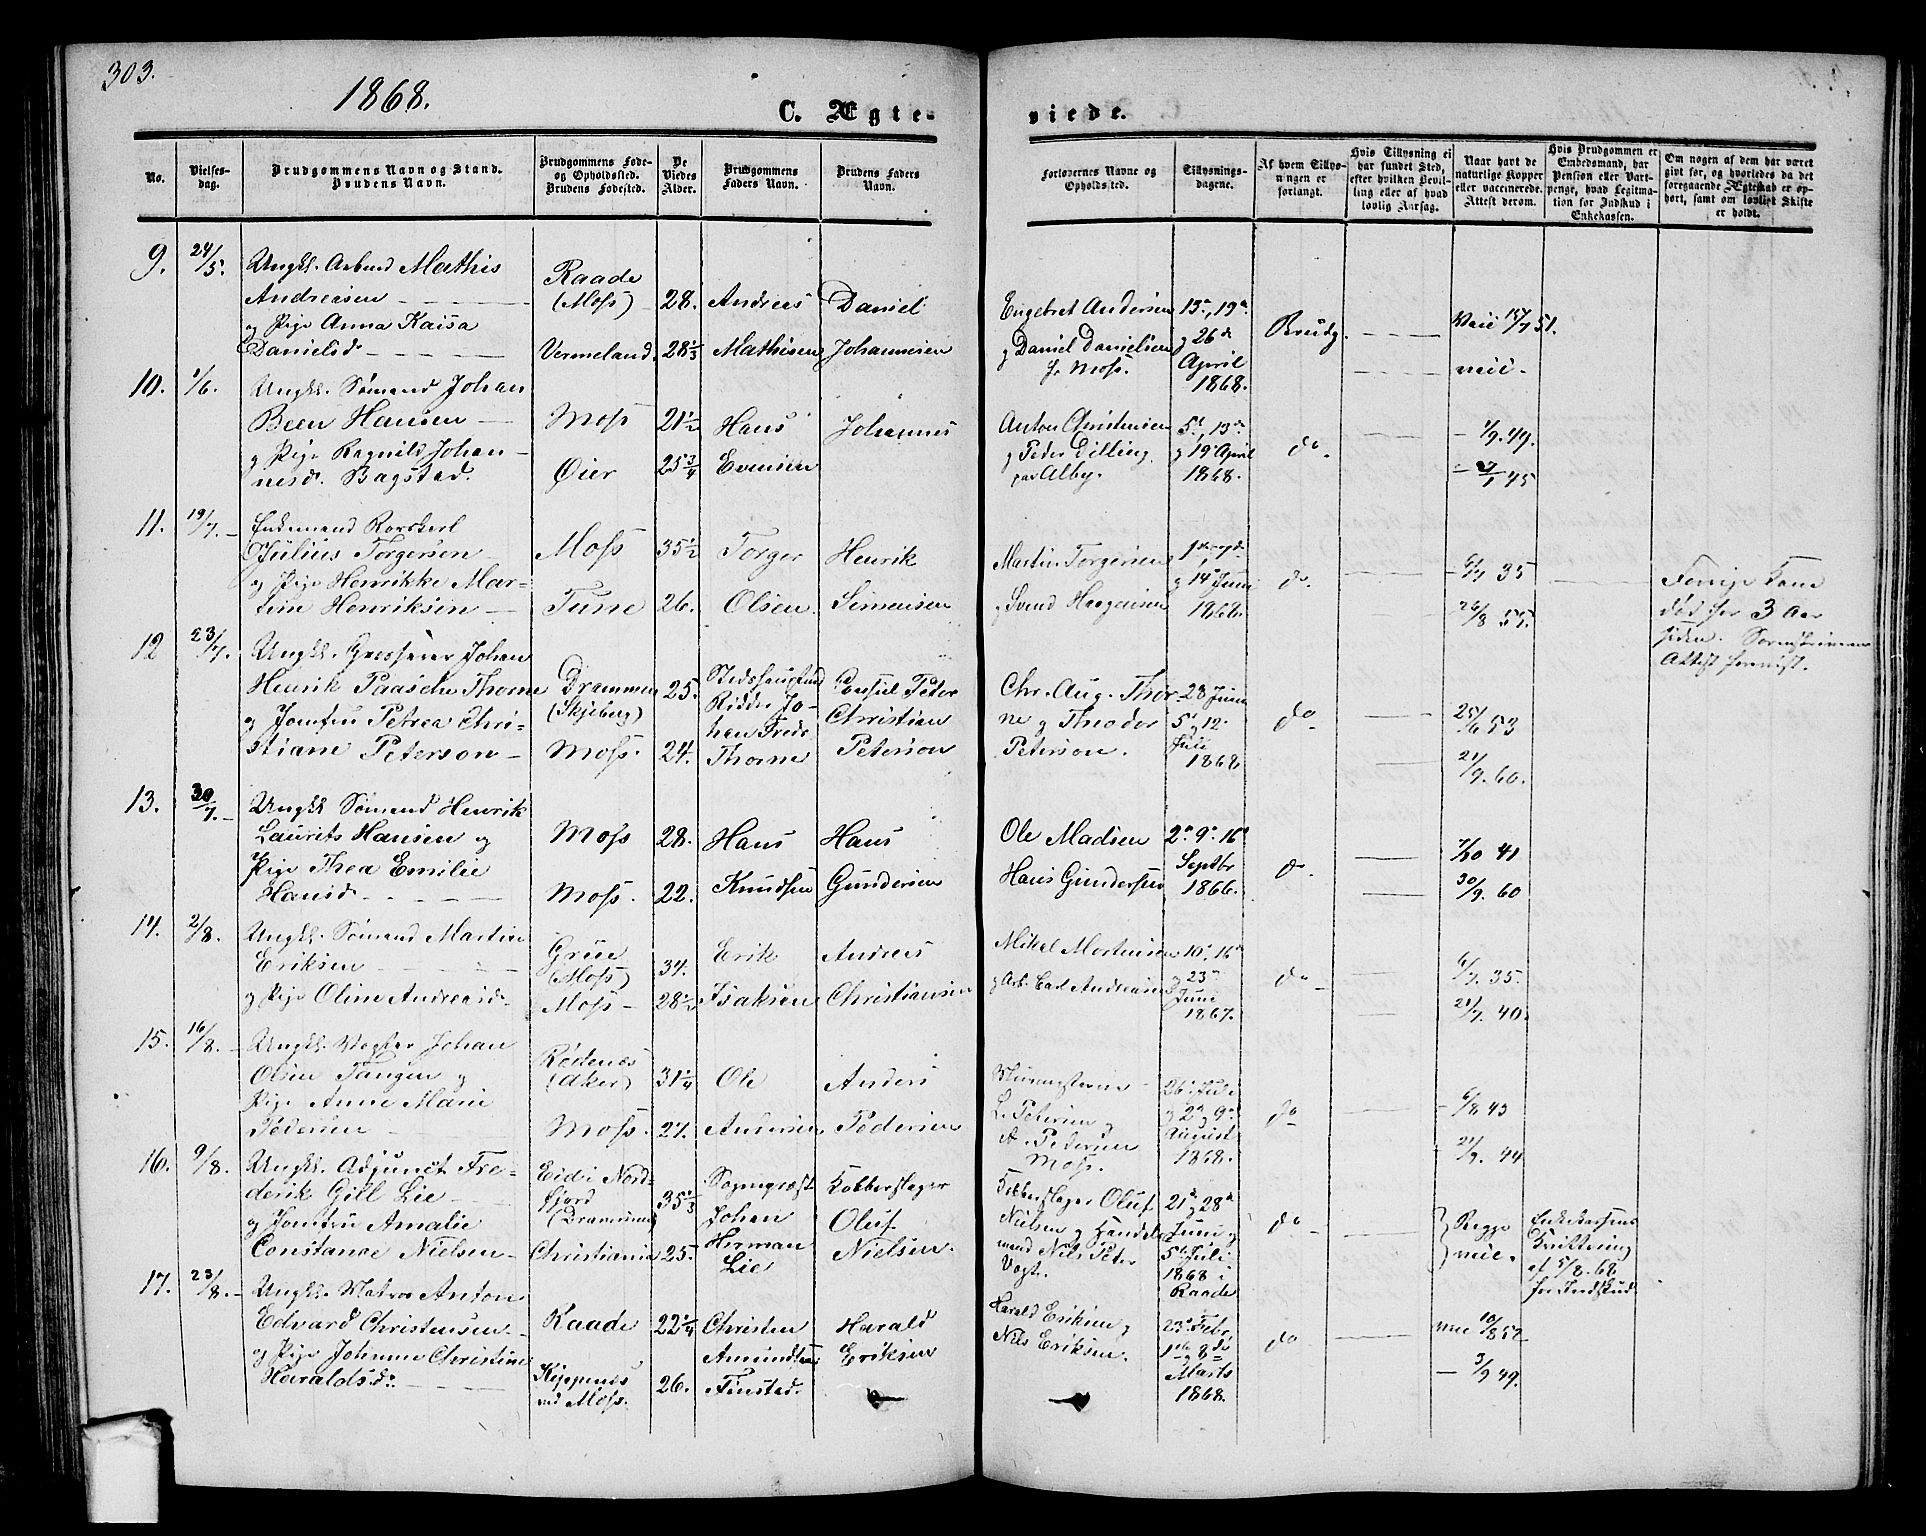 303.
1868.
C. Ægte-
viede.
No.
Vielses-
dag.
Brudgommens Navn og Stand.
Brudens Navn.
Brudgommens Føde-
og Opholdssted.
Brudens Fødested.
De
Viedes
Alder.
Brudgommens
Faders Navn.
Brudens Faders
Navn.
Forlovernes Navne og
Opholdssted.
Tillysnings-
dagene.
Af hvem Tillys-
ningen er
forlangt.
Hvis Tillysning ei
har fundet Sted,
efter hvilken Bevil-
ling eller af hvad
lovlig Aarsag.
Naar havt de
naturlige Kopper
eller vaccinerede.
Attest derom.
Hvis Brudgommen er
Embedsmand, har
Pension eller Vart-
penge, hvad Legitima-
tion for Indskud i
Enkekassen.
Om nogen af dem har været
givt før, og hvorledes da det
foregaaende Ægteskab er op-
hørt, samt om lovligt Skifte
er holdt.
9. 24/5.
Ungkl. Arbmd Mathis
Andreasen
og Pige Anna Kaisa
Danielsd
Raade
(Moss)
Vermeland.
28.
28 1/3
Andreas
Mathisen
Daniel
Johannesen
Engebret Andersen
og Daniel Danielsen
fr Moss.
13de, 19de
og 26de
April
1868.
Brudg.
15/7 51.
10. 1/6.
Ungkl. Sømand Johan
Been Hansen
og Pige Ragnild Johan-
nesd. Bagstad.
Moss
Øier
21 1/2
25 3/4
Hans
Evensen
Johannes
Anton Christensen
og Peder Dilling
paa Alby.
5te, 13de
og 19de April
1868.
do.
1/9. 49.
11. 19/7.
Enkemand Rorskarl
Julius Torgersen
og Pige Henrikke Mar-
tine Henriksen
Moss
Tune
35 1/2
26.
Torger
Olsen.
Henrik
Simensen
Martin Torgersen
1ste, 7de
og 14de Juni
1868.
do.
6/7 35
26/8 55.
Forrige Kone
død for 3 Aar
siden.
Attest forevist.
12 23/7.
Ungkl. Grosserer Johan
Henrik Paasche Thorne
og Jomfru Petrea Chri-
stiane Peterson
Drammen
(Skjeberg)
Moss.
25.
24.
Ridder Jo-
han Fredr
Thorne
Consul Peter
Christian
Peterson
Chr. Aug. Thor-
ne og Theodor
Peterson.
28 Juni
5te og 12
Juli
1868
do
25/6 53
21/9. 60.
13. 30/7.
Ungkl Sømand Henrik
Laurits Hansen og
Pige Thea Emilie
Hansd.
Moss
Moss.
28.
22.
Hans
Knudsen
Hans
Gundersen
Ole Madsen
Hans Gundersen
2de 9de 16de
Septbr
1866.
do.
7/10 41
30/9. 60
14. 2/8.
Ungkl. Sømand Martin
Eriksen
og Pige Oline Andreasd.
Grue
(Moss)
Moss
34.
28 1/2
Erik
Isaksen
Andreas
Christiansen
Mikel Mortensen
og Arb. Carl Andreasen
10de, 16de
og 23de
Juni
1867.
do
6/7. 35.
21/7. 40.
15. 16/8.
Ungkl. Vogter Johan
Olsen Tangen og
Pige Anne Marie
Pedersen
Rødenæs
(Aker)
Moss.
31 1/4
27.
Ole
Andersen
Anders
Pedersen
L. Petersen og
A. Pedersen
Moss.
26de Juli
og 2de og 9de
August
1868.
do
6/8 43
21/9. 44
16. 9/8.
Ungkl. Adjunct Fre-
derik Gill Lie
og Jomfru Amalie
Constance Nielsen
Eid i Nord-
fjord
(Drammen)
Christiania
35 1/3
25.
Sognepræst
Johan
Herman
Lie
Kobberslager
Oluf
Nielsen.
Kobberslager Oluf
Nielsen og Handels-
mand Nils Peter
Vogt.
21de og 28de
Juni og
5te Juli
1868
do
Begge
Enkekassens
Kvittering
af 5/8. 68
for Indskud
17. 23/8.
Ungkl. Matros Anton
Edvard Christensen
og Pige Johanne Christine
Haraldsd:
Raade
Kippenes
ved Moss.
22 1/4
26.
Christen
Amundsen
Finstad.
Harald
Eriksen
Harald Eriksen og
Nils Eriksen.
Raade
23de Febr.
1ste og 8de
Marts
1868.
do
10/8 52
3/9 49.